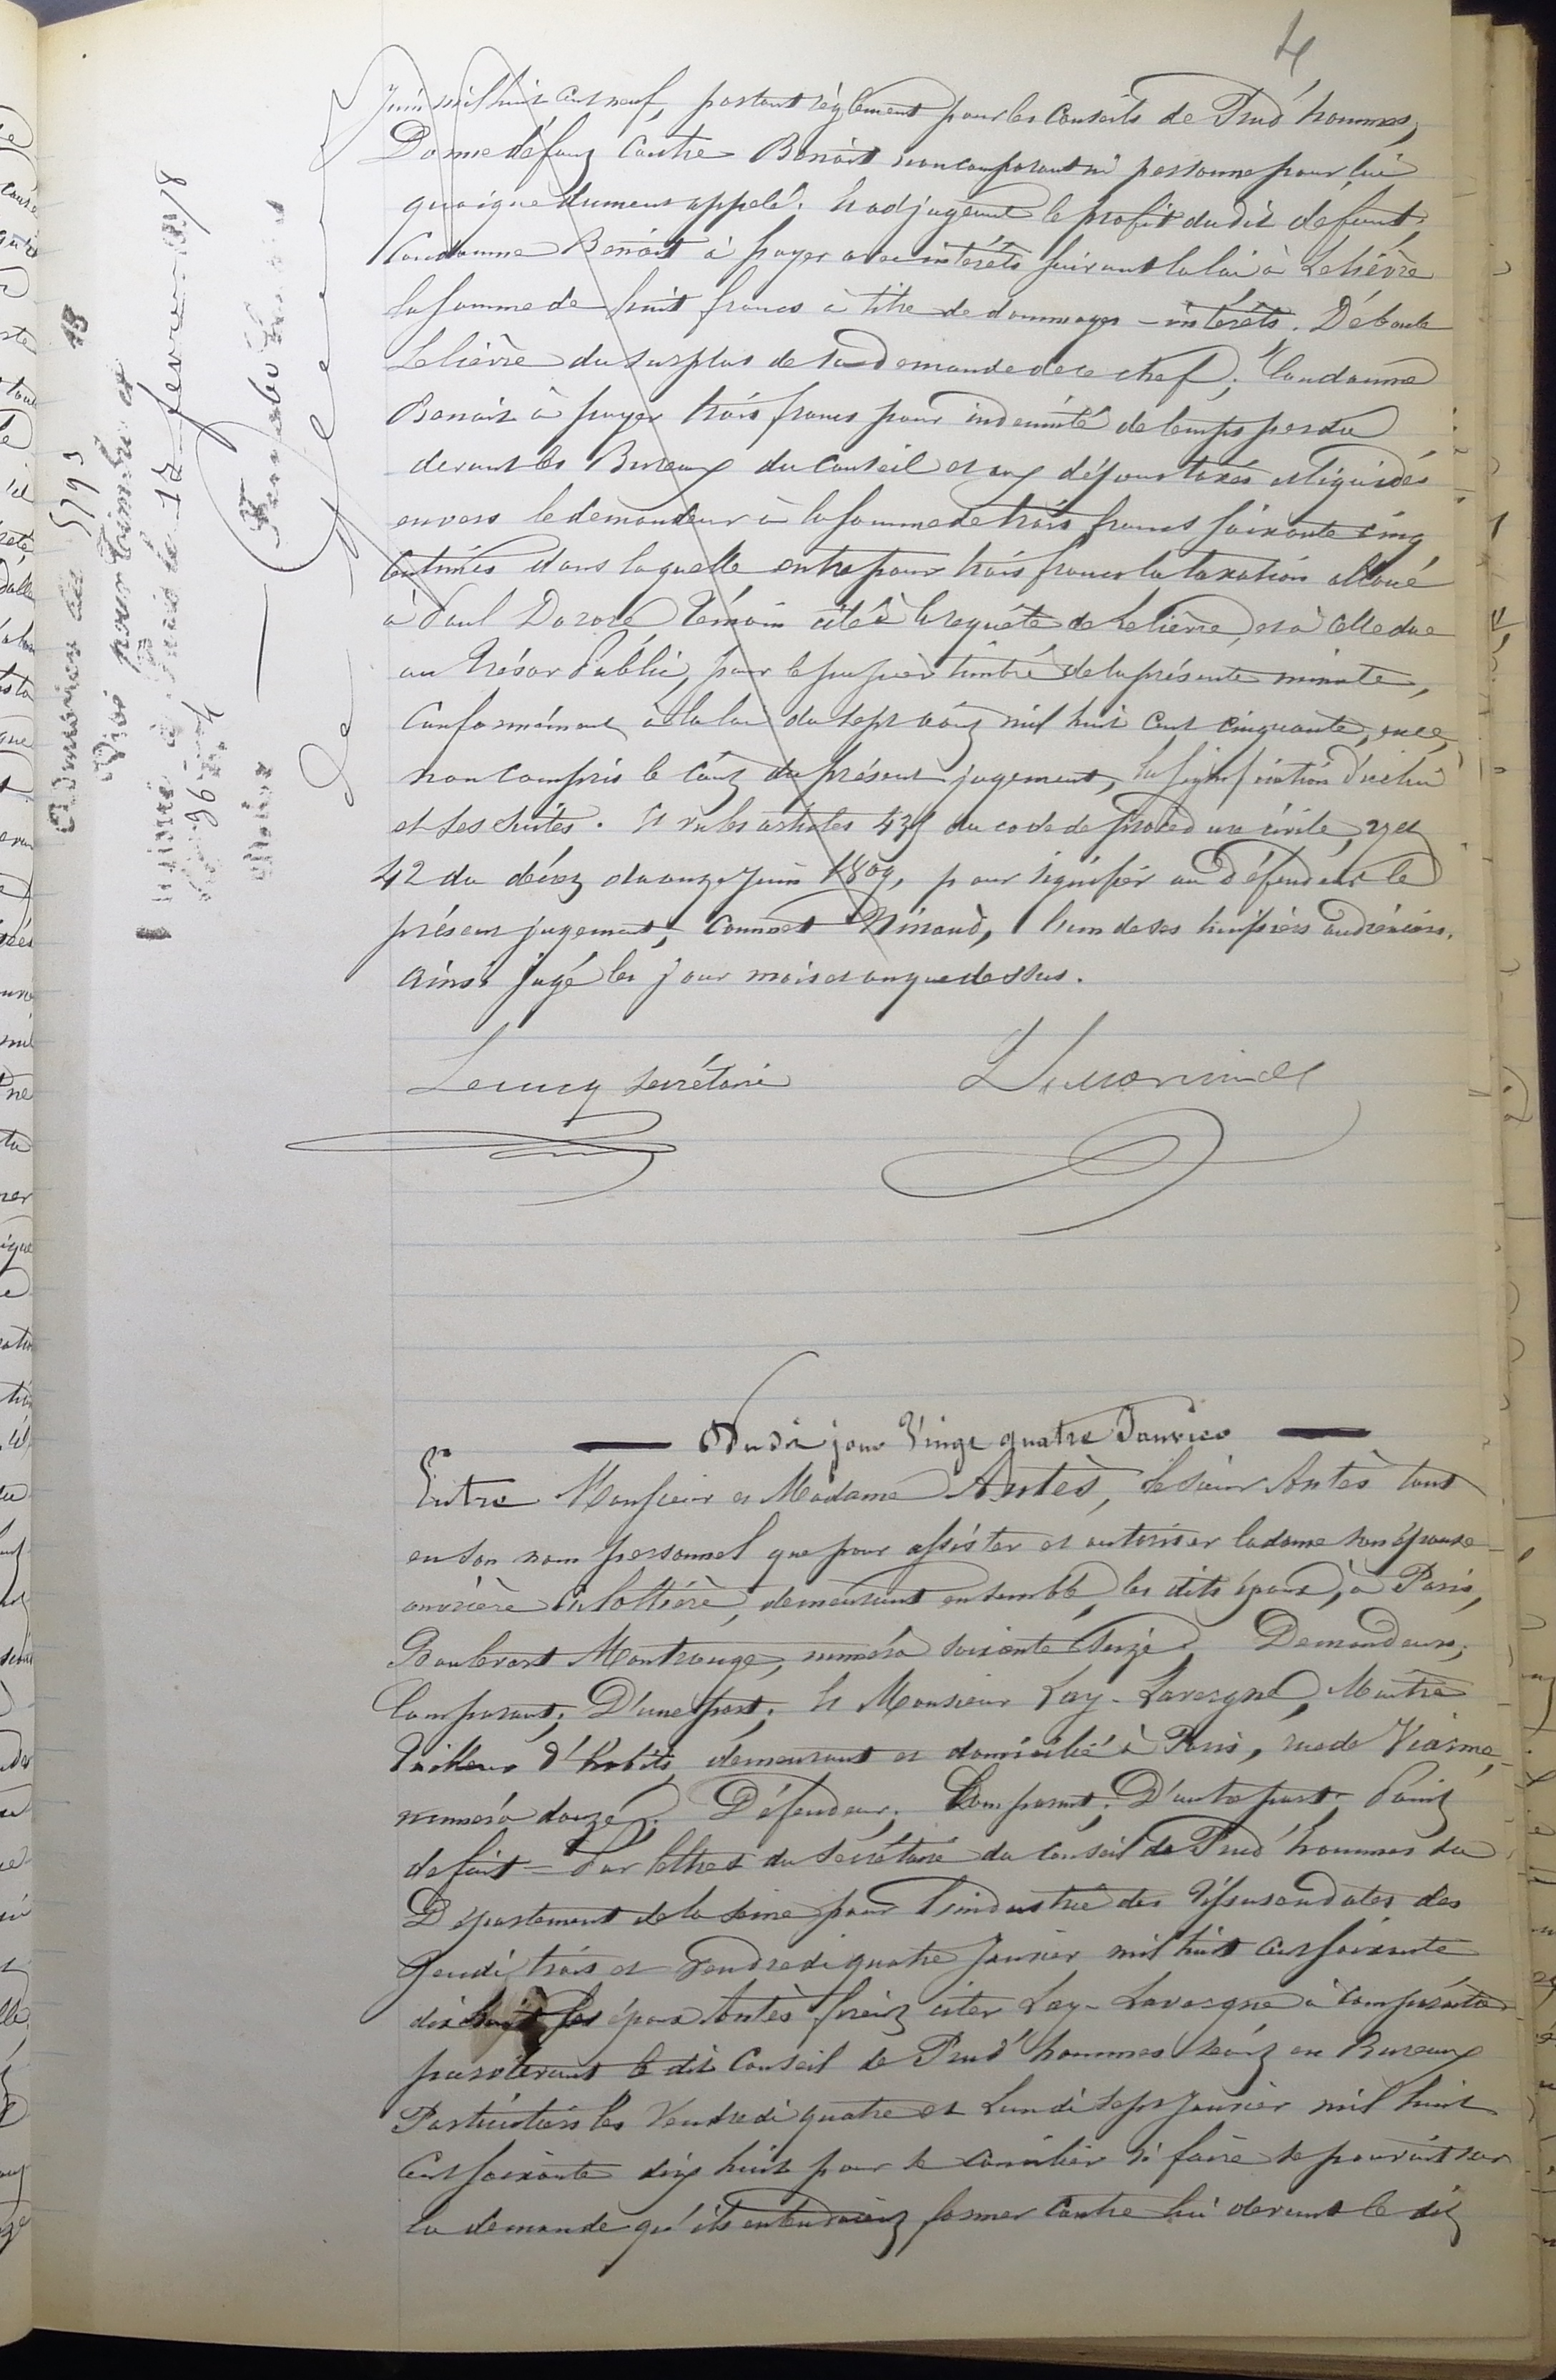 4
juin mil huit cent neuf, portant règlement pour les Conseils de Prud'hommes,
Donne défaut contre Benoit non comparant ni personne pour lui
quoique dument appelé. Et adjugeant le profit dudit defaut,
Condamne Benoit à payer avec intérêts suivant la loi à Lelièvre
la somme de huit francs à titre de dommages-intérêts. Déboute
Lelièvre du surplus de sa demande de ce chef; Condamne
Benoit à payer trois francs pour indemnité de temps perdu
devant les Bureaux du Conseil et aux dépens taxés et liquidés
envers le demandeur à la somme de trois francs soixante cinq
centimes dans laquelle entre pour trois francs la taxation alloué
à Paul témoin cité à la requête de Lelièvre, et à celle due
au Trésor Public, pour le papier timbré de la présente minute,
Conformément à la loi du sept août mil huit cent cinquante, en ce,
non compris le coût du présent jugement, la signification d'icelui
et ses suites. Et vu les articles 435 du code de procédure civile, 27 et
42 du décret du onze juin 1809, pour signifier au défendeur le
présent jugement, Commet l'un de ses huissiers audienciers.
Ainsi jugé les jour mois et an que dessus.
Lecucq secrétaire
Dudit jour Vingt quatre Janvier
Entre Monsieur et Madame Antès, le sieur Antès tant
en son nom personnel que pour assister et autoriser la dame son épouse
ouvrière culottière, demeurant ensemble, les dits époux, à Paris,
Boulevart Montrouge, numéro soixante seize; Demandeurs;
Comparant; D'une part; Et Monsieur Lay-Lavergne, Maître
Tailleur d'habits, demeurant et domicilié à Paris, rue de Viarme,
numéro douze; Défendeur; Comparant; D'autre part; Point
de fait – Par lettres du secrétaire du Conseil de Prud'hommes du
Département de la Seine pour l'industrie des Tissus en dates des
Jeudi trois et Vendredi quatre Janvier mil huit cent soixante
dix huit les époux Antès firent citer Lay-Lavergne à comparaître
pardevant le dit Conseil de Prud'hommes séant en Bureaux
Particuliers les Vendredi quatre et Lundi sept Janvier mil huit
cent soixante dix huit pour se concilier si faire se pouvait sur
la demande qu'ils entendaient former contre lui devant le dit
Visé pour timbre et